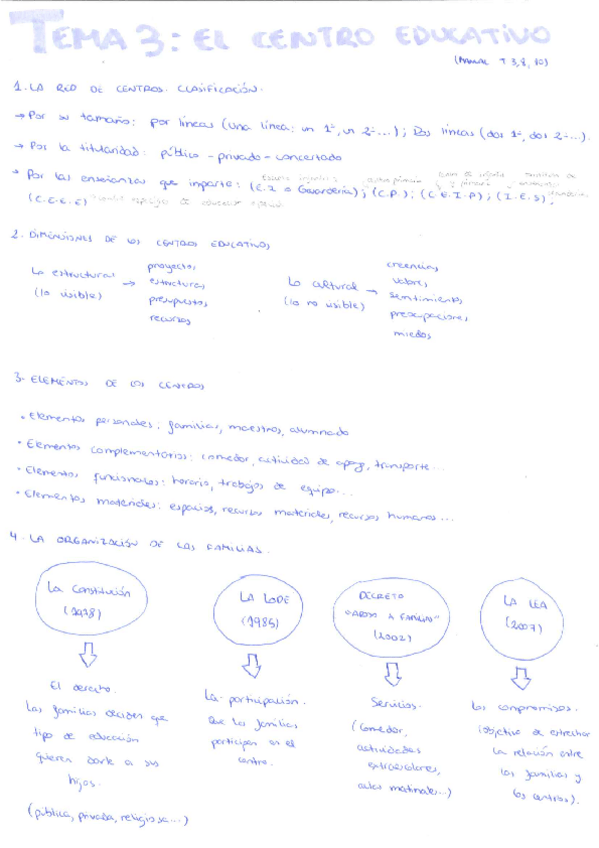 TEMA 3: EL CENTRO EDUCATIVO
(Manual T 3, 8, 10)
1. LA RED DE CENTROS. CLASIFICACIÓN.
→ Por su tamaño: por líneas (una línea: un 1º, un 2º...); Dos líneas (dos 1º, dos 2º...).
→ Por la titularidad: público - privado - concertado
→ Por las enseñanzas que imparte: (C.I o Guardería); (C.P.); (C.E.I.P); (I.E.S).
(C.C.E.E)
2. DIMENSIONES DE LOS CENTROS EDUCATIVOS
La estructural (lo visible) →
proyectos
estructuras
presupuestos
recursos
Lo cultural (lo no visible) →
creencias
valores
sentimientos
preocupaciones
miedos
3. ELEMENTOS DE LOS CENTROS
• Elementos personales: familias, maestros, alumnado
• Elementos complementarios: comedor, actividad de apoyo, transporte...
• Elementos funcionales: horario, trabajos de equipo...
• Elementos materiales: espacios, recursos materiales, recursos humanos...
4. LA ORGANIZACIÓN DE LAS FAMILIAS.
La Constitución
(1978)
El derecho.
Las familias deciden que
tipo de educación
quieren darle a sus
hijos.
(pública, privada, religiosa...)
LA LODE
(1985)
La participación.
Que las familias
participen en el
centro.
DECRETO
"APOYO A FAMILIAS"
(2002)
Servicios.
(Comedor,
actividades
extraescolares,
aulas matinales...)
LA LEA
(2007)
Los compromisos.
(objetivo de estrechar
la relación entre
las familias y
los centros).